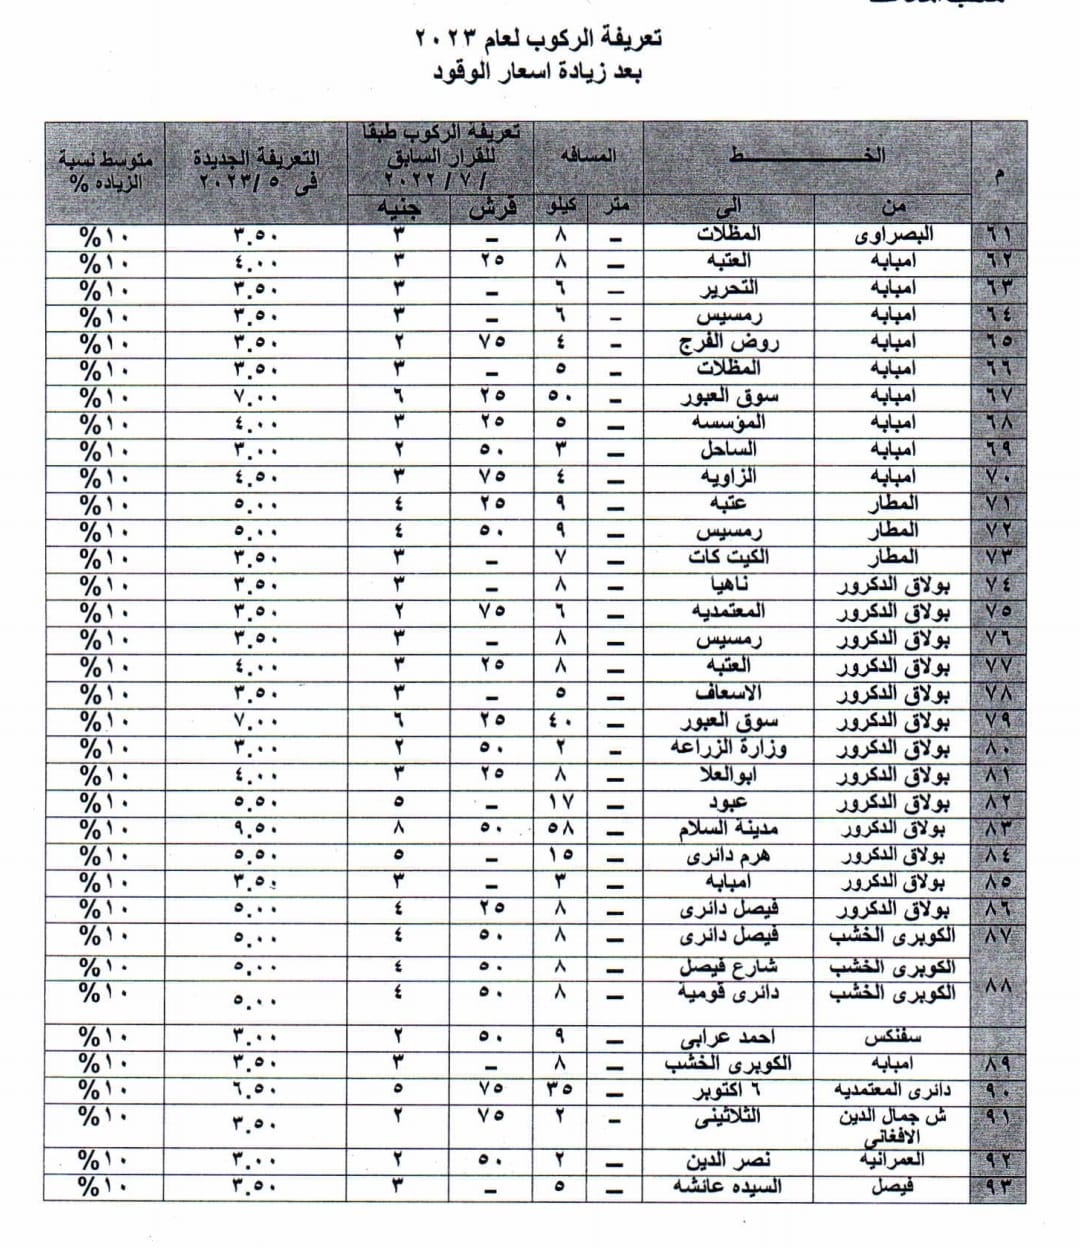 تعريفة الركوب لعام ٢٠٢٣
بعد زيادة اسعار الوقود
م الخـــــط المسافه تعريفة الركوب طبقا للقرار السابق / ٧ / ٢٠٢٢ التعريفة الجديدة فى ٥ /٢٠٢٣ متوسط نسبة الزياده %
من الى متر كيلو قرش جنيه
٦١ البصراوى المظلات – ٨ – ٣ ٣.٥٠ ١٠%
٦٢ امبابه العتبه – ٨ ٢٥ ٣ ٤.٠٠ ١٠%
٦٣ امبابه التحرير – ٦ – ٣ ٣.٥٠ ١٠%
٦٤ امبابه رمسيس – ٦ – ٣ ٣.٥٠ ١٠%
٦٥ امبابه روض الفرج – ٤ ٧٥ ٢ ٣.٥٠ ١٠%
٦٦ امبابه المظلات – ٥ – ٣ ٣.٥٠ ١٠%
٦٧ امبابه سوق العبور – ٥٠ ٢٥ ٦ ٧.٠٠ ١٠%
٦٨ امبابه المؤسسه – ٥ ٢٥ ٣ ٤.٠٠ ١٠%
٦٩ امبابه الساحل – ٣ ٥٠ ٢ ٣.٠٠ ١٠%
٧٠ امبابه الزاويه – ٤ ٧٥ ٣ ٤.٥٠ ١٠%
٧١ المطار عتبه – ٩ ٢٥ ٤ ٥.٠٠ ١٠%
٧٢ المطار رمسيس – ٩ ٥٠ ٤ ٥.٠٠ ١٠%
٧٣ المطار الكيت كات – ٧ – ٣ ٣.٥٠ ١٠%
٧٤ بولاق الدكرور ناهيا – ٨ – ٣ ٣.٥٠ ١٠%
٧٥ بولاق الدكرور المعتمديه – ٦ ٧٥ ٢ ٣.٥٠ ١٠%
٧٦ بولاق الدكرور رمسيس – ٨ – ٣ ٣.٥٠ ١٠%
٧٧ بولاق الدكرور العتبه – ٨ ٢٥ ٣ ٤.٠٠ ١٠%
٧٨ بولاق الدكرور الاسعاف – ٥ – ٣ ٣.٥٠ ١٠%
٧٩ بولاق الدكرور سوق العبور – ٤٠ ٢٥ ٦ ٧.٠٠ ١٠%
٨٠ بولاق الدكرور وزارة الزراعه – ٢ ٥٠ ٢ ٣.٠٠ ١٠%
٨١ بولاق الدكرور ابوالعلا – ٨ ٢٥ ٣ ٤.٠٠ ١٠%
٨٢ بولاق الدكرور عبود – ١٧ – ٥ ٥.٥٠ ١٠%
٨٣ بولاق الدكرور مدينة السلام – ٥٨ ٥٠ ٨ ٩.٥٠ ١٠%
٨٤ بولاق الدكرور هرم دائرى – ١٥ – ٥ ٥.٥٠ ١٠%
٨٥ بولاق الدكرور امبابه – ٣ – ٣ ٣.٥٠ ١٠%
٨٦ بولاق الدكرور فيصل دائرى – ٨ ٢٥ ٤ ٥.٠٠ ١٠%
٨٧ الكوبرى الخشب فيصل دائرى – ٨ ٥٠ ٤ ٥.٠٠ ١٠%
٨٨ الكوبرى الخشب شارع فيصل – ٨ ٥٠ ٤ ٥.٠٠ ١٠%
الكوبرى الخشب دائرى قومية – ٨ ٥٠ ٤ ٥.٠٠ ١٠%
سفنكس احمد عرابى – ٩ ٥٠ ٢ ٣.٠٠ ١٠%
٨٩ امبابه الكوبرى الخشب – ٨ – ٣ ٣.٥٠ ١٠%
٩٠ دائرى المعتمديه ٦ اكتوبر – ٣٥ ٧٥ ٥ ٦.٥٠ ١٠%
٩١ ش جمال الدين الافغانى الثلاثينى – ٢ ٧٥ ٢ ٣.٥٠ ١٠%
٩٢ العمرانيه نصر الدين – ٢ ٥٠ ٢ ٣.٠٠ ١٠%
٩٣ فيصل السيده عائشه – ٥ – ٣ ٣.٥٠ ١٠%